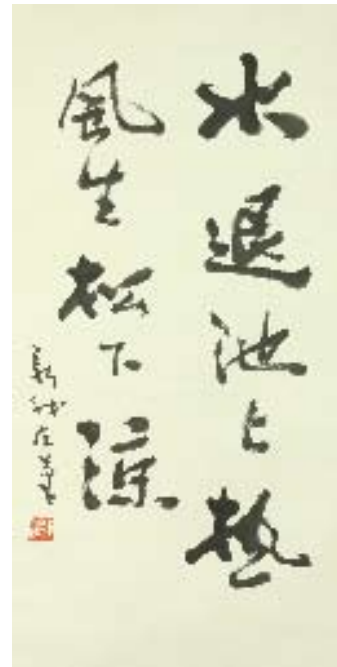 水退池上熱
風生松下涼